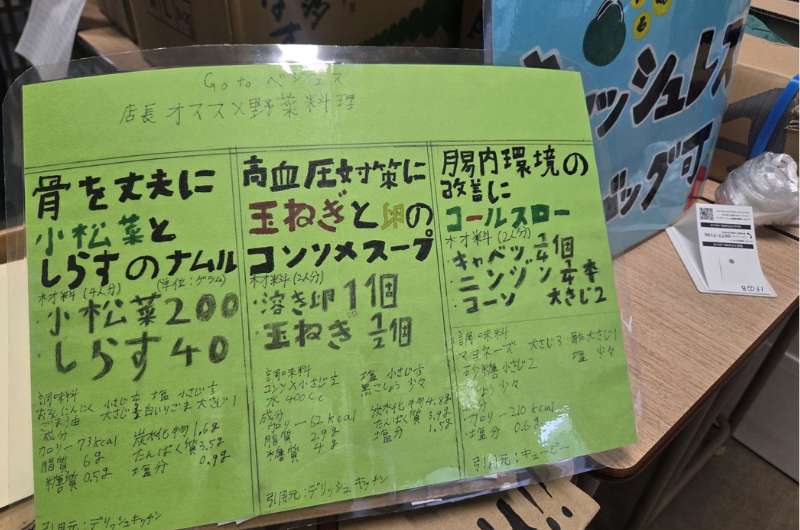 Go to ベジェス
店長オススメ野菜料理
骨を丈夫に
小松菜と
しらすのナムル
材料(4人分) (単位:グラム)
・小松菜200
・しらす40
調味料
おろしにんにく 小さじ 塩 小さじ
ごま油 大さじ 白いりごま 大さじ1
成分
カロリー73kcal 炭水化物1.6g
脂質 6g たんぱく質3.5g
糖質 0.5g 塩分 0.9g
引用元:デリッシュキッチン
高血圧対策に
玉ねぎと卵の
コンソメスープ
材料(2人分)
・溶き卵1個
・玉ねぎ1/2個
調味料
コンソメ小さじ 塩 小さじ
水 400cc 黒こしょう 少々
成分
カロリー62kcal 炭水化物4.8g
脂質 2.9g たんぱく質3.9g
糖質 4g 塩分 1.5g
引用元:デリッシュキッチン
腸内環境の
改善に
コールスロー
材料(2人分)
・キャベツ1/4個
・ニンジン1/4本
・コーン 大さじ2
調味料
マヨネーズ 大さじ3 酢大さじ1
砂糖 小さじ2 塩 少々
少々
カロリー210kcal
塩分 0.6g
引用元:キューピー
キャッシュレス
可